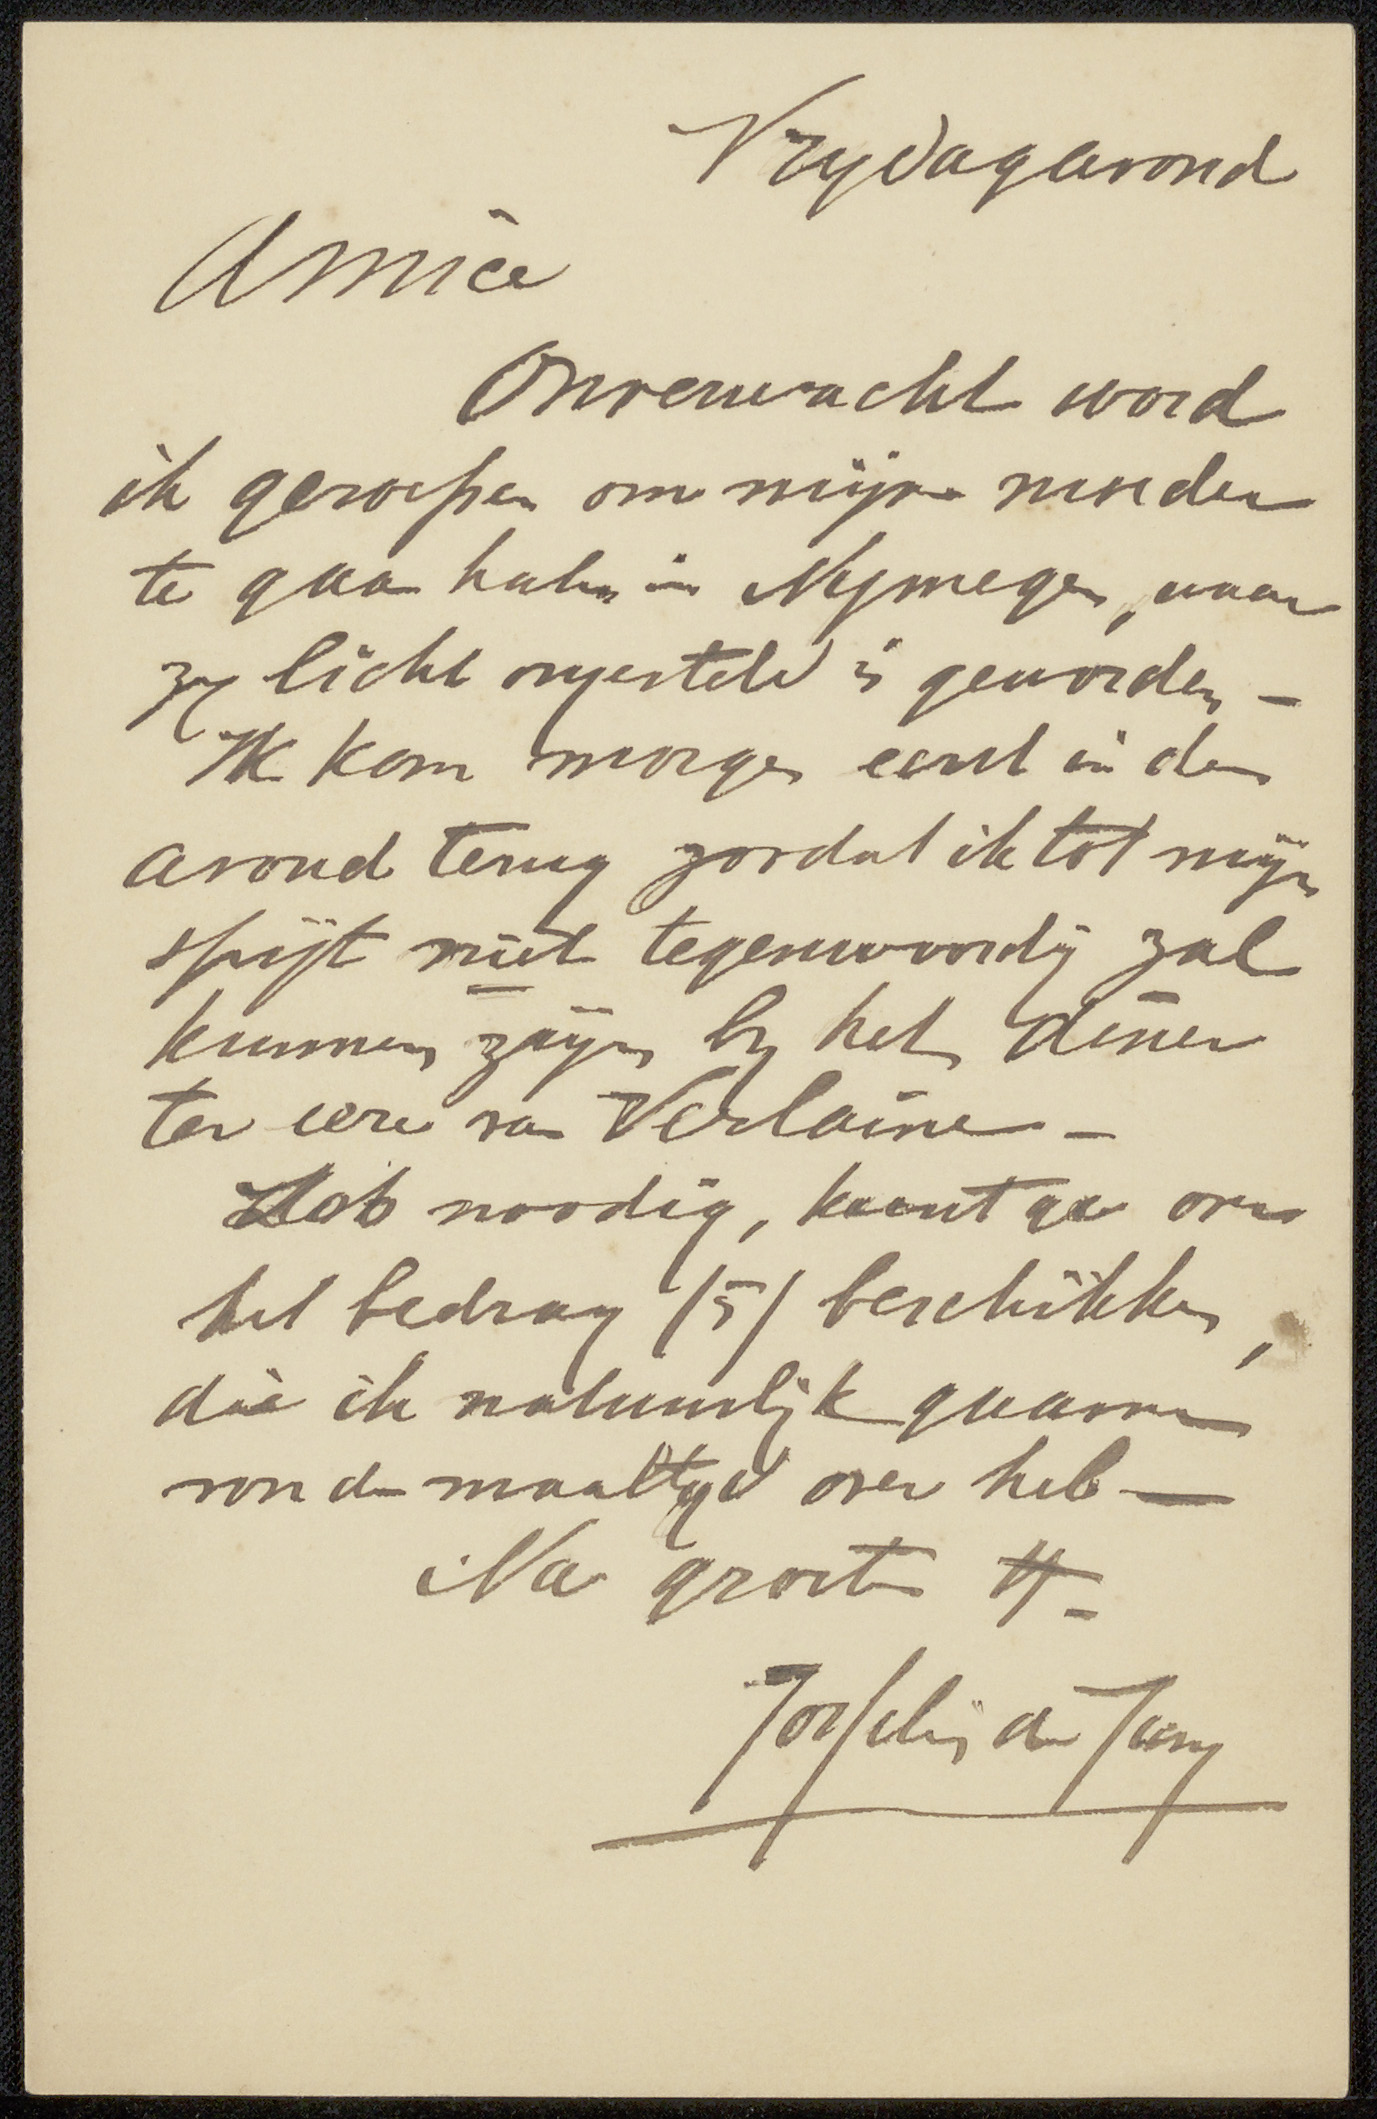 Vrydagavond
Amice
Onverwacht word
ik geroepen om mijne moeder
te gaan halen in Nijmegen, waar
zy licht ongesteld is geworden —
Ik kom morgen eerst in den
avond terug zoodat ik tot mijn
spijt niet tegenwoordig zal
kunnen zijn by het diner
ter eere van Verlaine —
noodig, kunt ge over
het bedrag (5) beschikken,
die ik natuurlijk gaarne
voor de maaltyd over heb —
Na groete tt-
Josselin de Jong